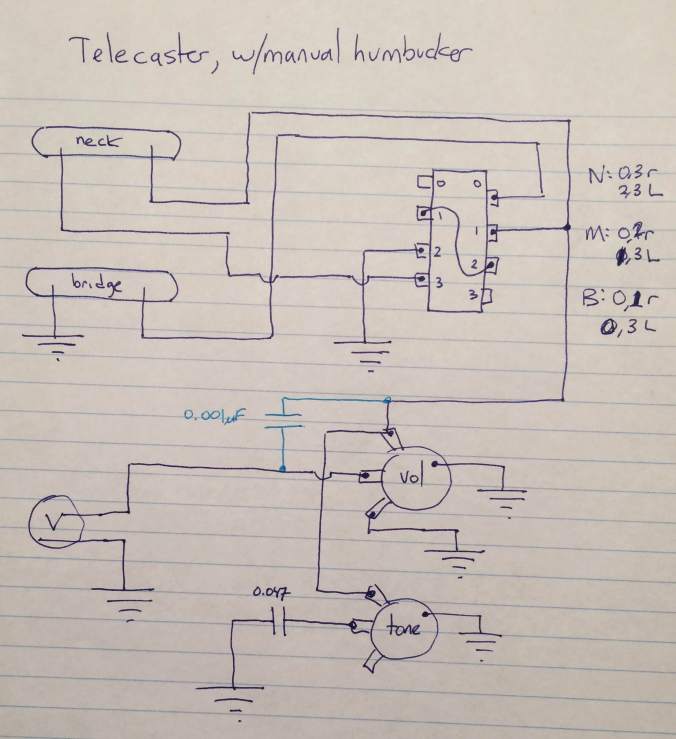 Telecaster, w/manual humbucker
neck
0 0
1
1
2
2
3
3
N: 0,3r
2,3 L
M: 0,2r
1,3 L
B: 0,1r
0,3 L
bridge
0.001µF
vol
V
0.047
tone